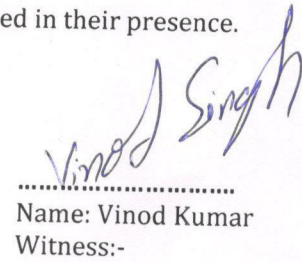 ed in their presence.
Vinod Singh
....................................
Name: Vinod Kumar
Witness:-